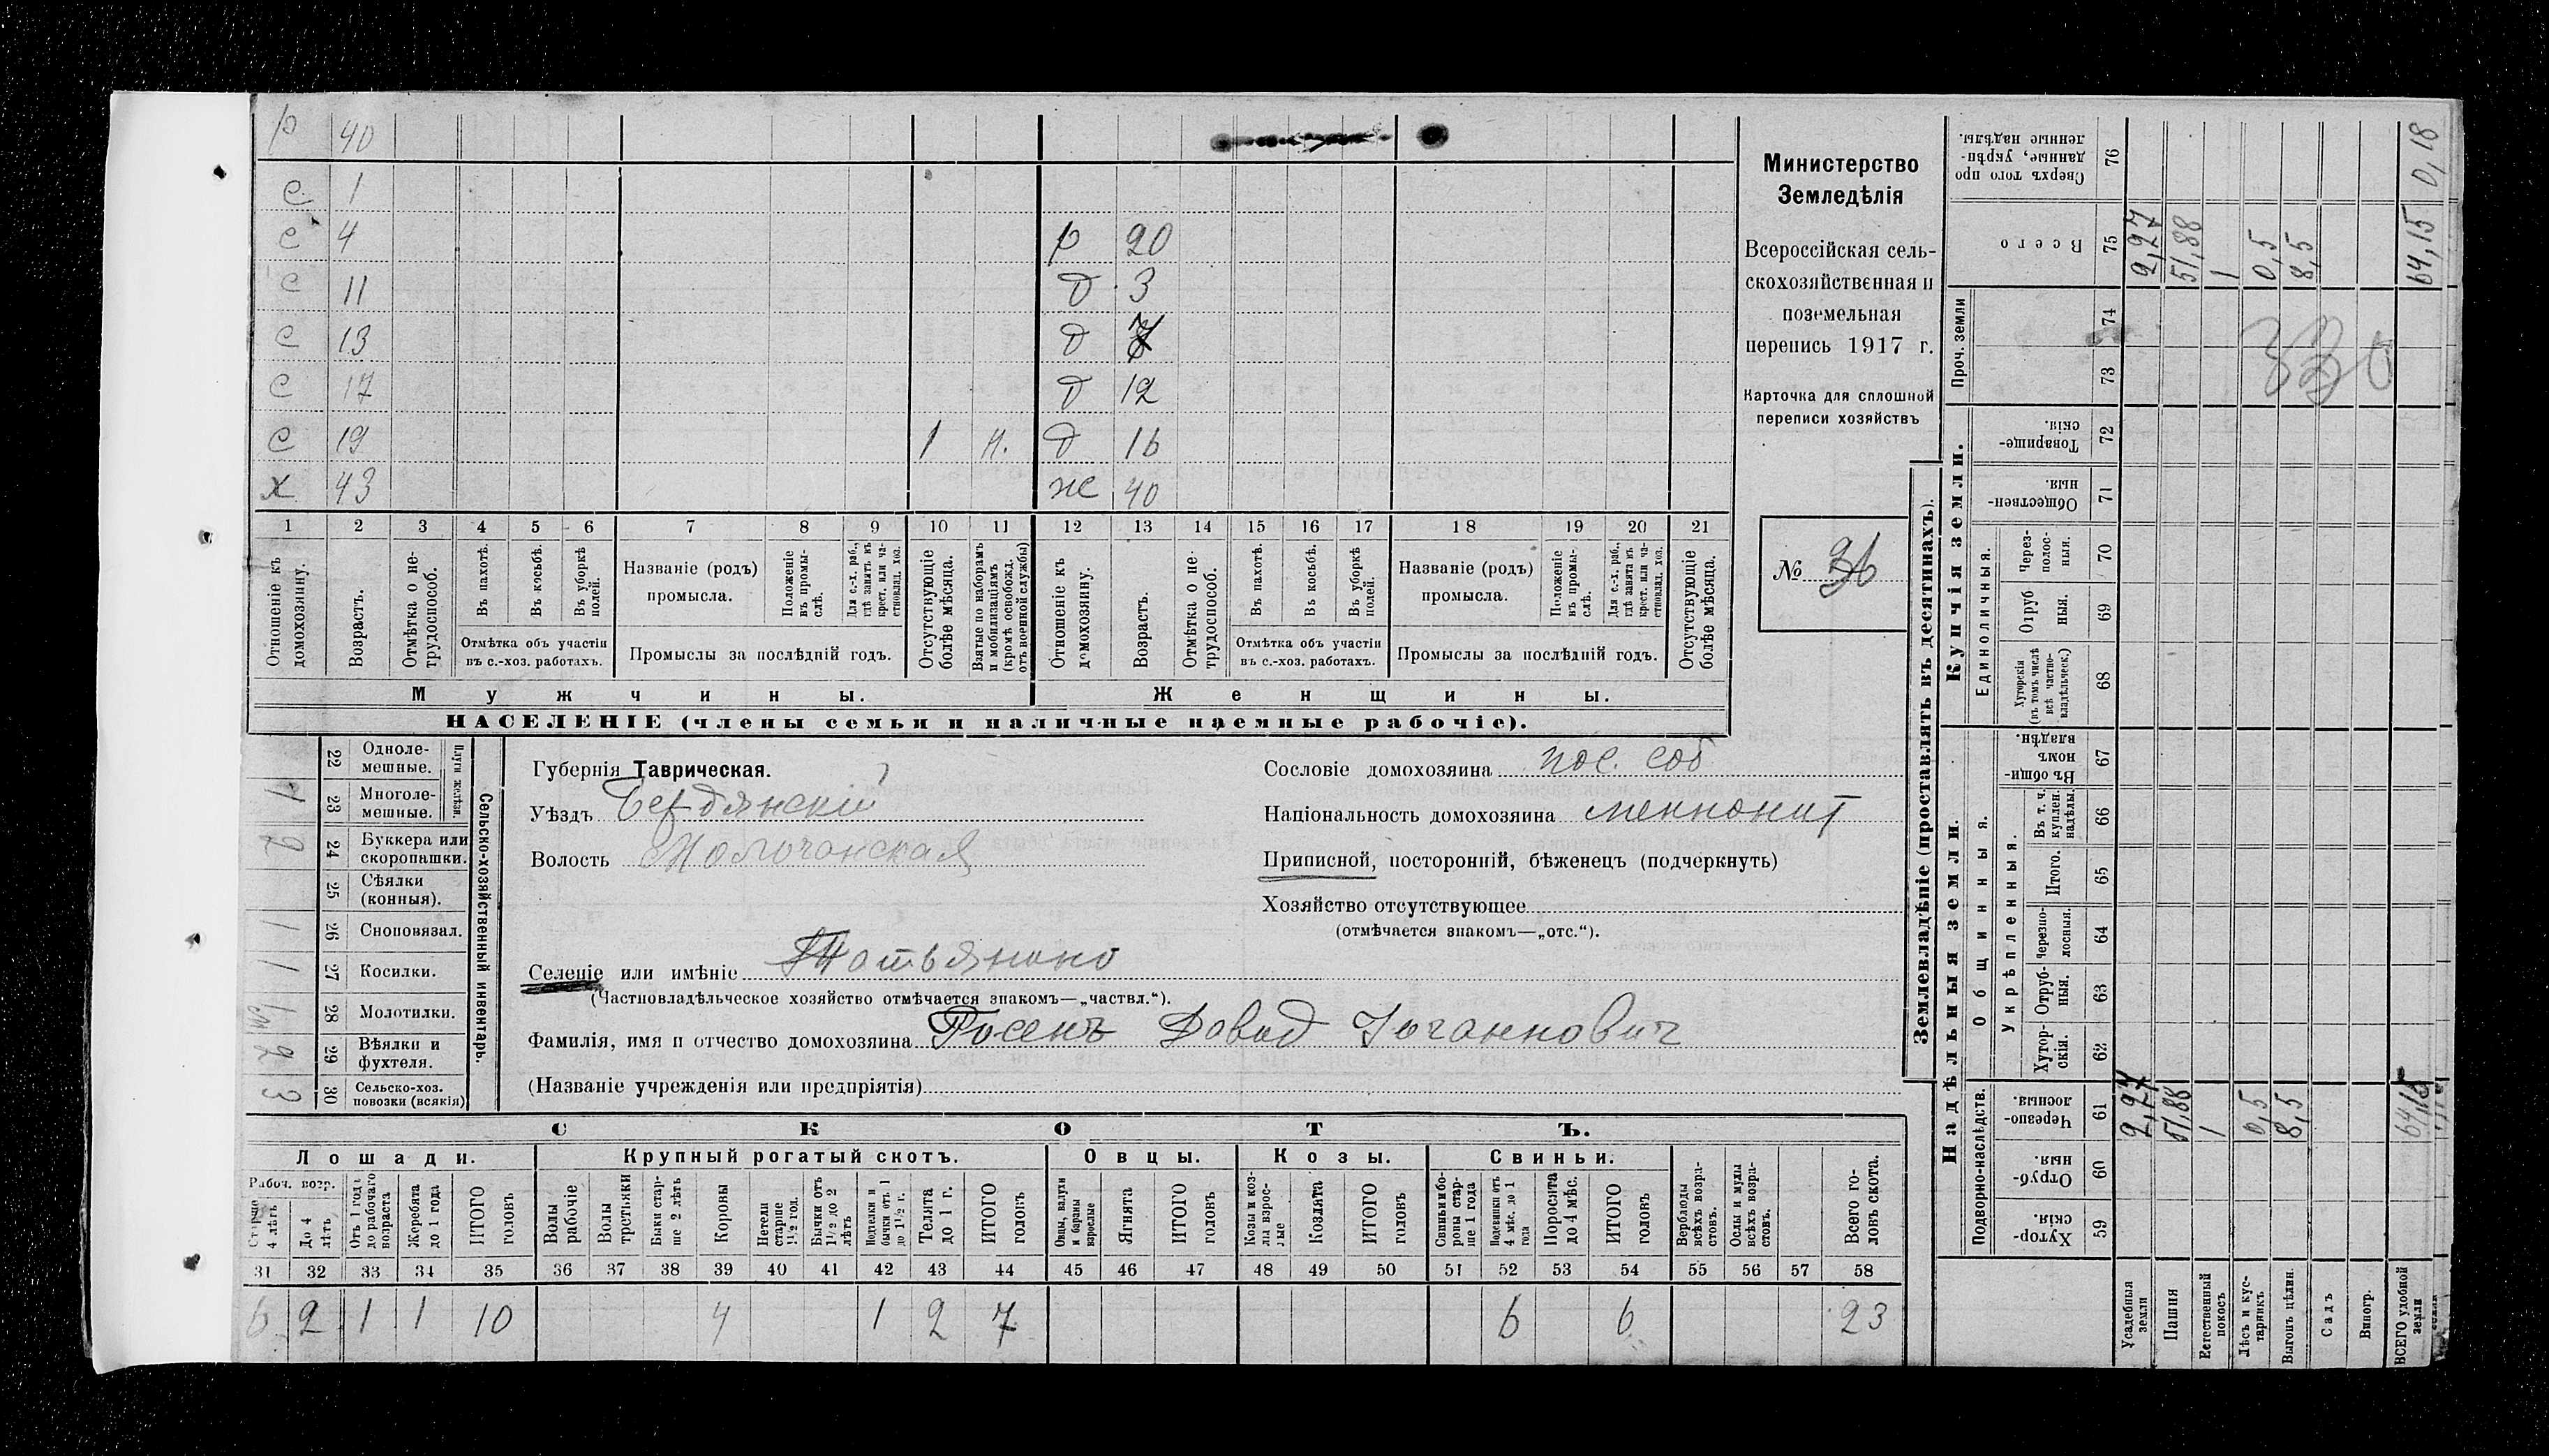 р 40
с 1
с 4 р 20
с 11 д 3
с 13 д
с 17 д 12
с 19 1 н. д 16
х 43 ж 40
1 2 3 4 5 6 7 8 9 10 11 12 13 14 15 16 17 18 19 20 21
Отношеніе къ домохозяину.
Возрастъ.
Отмѣтка о не-трудоспособ.
Въ пахотѣ.
Въ косьбѣ.
Въ уборкѣ полей.
Отмѣтка объ участіи въ с.-хоз. работахъ.
Названіе (родъ) промысла.
Положеніе въ промы-слѣ.
Для с.-х. раб., гдѣ занятъ въ крест. или ча-стновлад. хоз.
Промыслы за послѣдній годъ.
Отсутствующіе болѣе мѣсяца.
Взятые по наборамъ и мобилизаціямъ (кромѣ освобожд. отъ военной службы)
Отношеніе къ домохозяину.
Возрастъ.
Отмѣтка о не-трудоспособ.
Въ пахотѣ.
Въ косьбѣ.
Въ уборкѣ полей.
Отмѣтка объ участіи въ с.-хоз. работахъ.
Названіе (родъ) промысла.
Положеніе въ промы-слѣ.
Для с.-х. раб., гдѣ занята въ крест. или ча-стновлад. хоз.
Промыслы за послѣдній годъ.
Отсутствующіе болѣе мѣсяца.
Мужчины. Женщины.
НАСЕЛЕНІЕ (члены семьи и наличные наемные рабочіе).
Министерство
Земледѣлія
Всероссійская сель-
скохозяйственная и
поземельная
перепись 1917 г.
Карточка для сплошной
переписи хозяйствъ
№
Сельско-хозяйственный инвентарь.
Плуги желѣзн.
22 Одноле-мешные.
23 Многоле-мешные. 1
24 Буккера или скоропашки. 2
25 Сѣялки (конныя).
26 Сноповязал. 1
27 Косилки. 1
28 Молотилки. 1
29 Вѣялки и фухтеля. 2
30 Сельско-хоз. повозки (всякія) 3
Губернія Таврическая.
Уѣздъ Бердянскій
Волость Молочанская
Селеніе или имѣніе
(Частновладѣльческое хозяйство отмѣчается знакомъ—„частвл.“).
Фамилія, имя и отчество домохозяина Давид Иоганнович
(Названіе учрежденія или предпріятія)
Сословіе домохозяина пос. соб
Національность домохозяина меннонит
Приписной, посторонній, бѣженецъ (подчеркнуть)
Хозяйство отсутствующее
(отмѣчается знакомъ—„отс.“).
СКОТЪ.
Лошади. Крупный рогатый скотъ. Овцы. Козы. Свиньи.
Рабоч. возр.
Старше 4 лѣтъ
До 4 лѣтъ
Отъ 1 года до рабочаго возраста
Жеребята до 1 года
ИТОГО головъ
Волы рабочіе
Волы третьяки
Быки стар-ше 2 лѣтъ
Коровы
Нетели старше 1½ год.
Бычки отъ 1½ до 2 лѣтъ
Подтелки и бычки отъ 1 до 1½ г.
Телята до 1 г.
ИТОГО головъ
Овцы, валухи и бараны взрослые
Ягнята
ИТОГО головъ
Козы и коз-лы взрос-лые
Козлята
ИТОГО головъ
Свиньи и бо-ровы стар-ше 1 года
Подсвинки отъ 4 мѣс. до 1 года
Поросята до 4 мѣс.
ИТОГО головъ
Верблюды всѣхъ возра-стовъ.
Ослы и мулы всѣхъ возра-стовъ.
Всего го-ловъ скота.
31 32 33 34 35 36 37 38 39 40 41 42 43 44 45 46 47 48 49 50 51 52 53 54 55 56 57 58
6 2 1 1 10 4 1 2 7 6 6 23
Землевладѣніе (проставлять въ десятинахъ).
Надѣльныя земли.
Подворно-наслѣдств.
Хутор-скія. 59
Отруб-ныя. 60
Черезпо-лосныя. 61
Общинныя.
Укрѣпленныя.
Хутор-скія. 62
Отруб-ныя. 63
Черезпо-лосныя. 64
Итого. 65
Въ т. ч. куплен. надѣлы. 66
Въ общи-номъ владѣн. 67
Купчія земли.
Единоличныя.
Хуторскія (въ томъ числѣ всѣ частно-владѣльческ.) 68
Отруб ныя. 69
Через-полос-ныя. 70
Обществен-ныя. 71
Товарище-скія. 72
Проч. земли
73 74
Всего 75
Сверхъ того про данные, укрѣп-ленные надѣлы. 76
Усадебныя земли 2,27 2,27
Пашня 51,88 51,88
Естественный покосъ 1 1
Лѣсъ и кус-тарникъ 0,5 0,5
Выгонъ цѣлин. 8,5 8,5
Садъ
Виногр.
ВСЕГО удобной земли 64,15 64,15 0,18